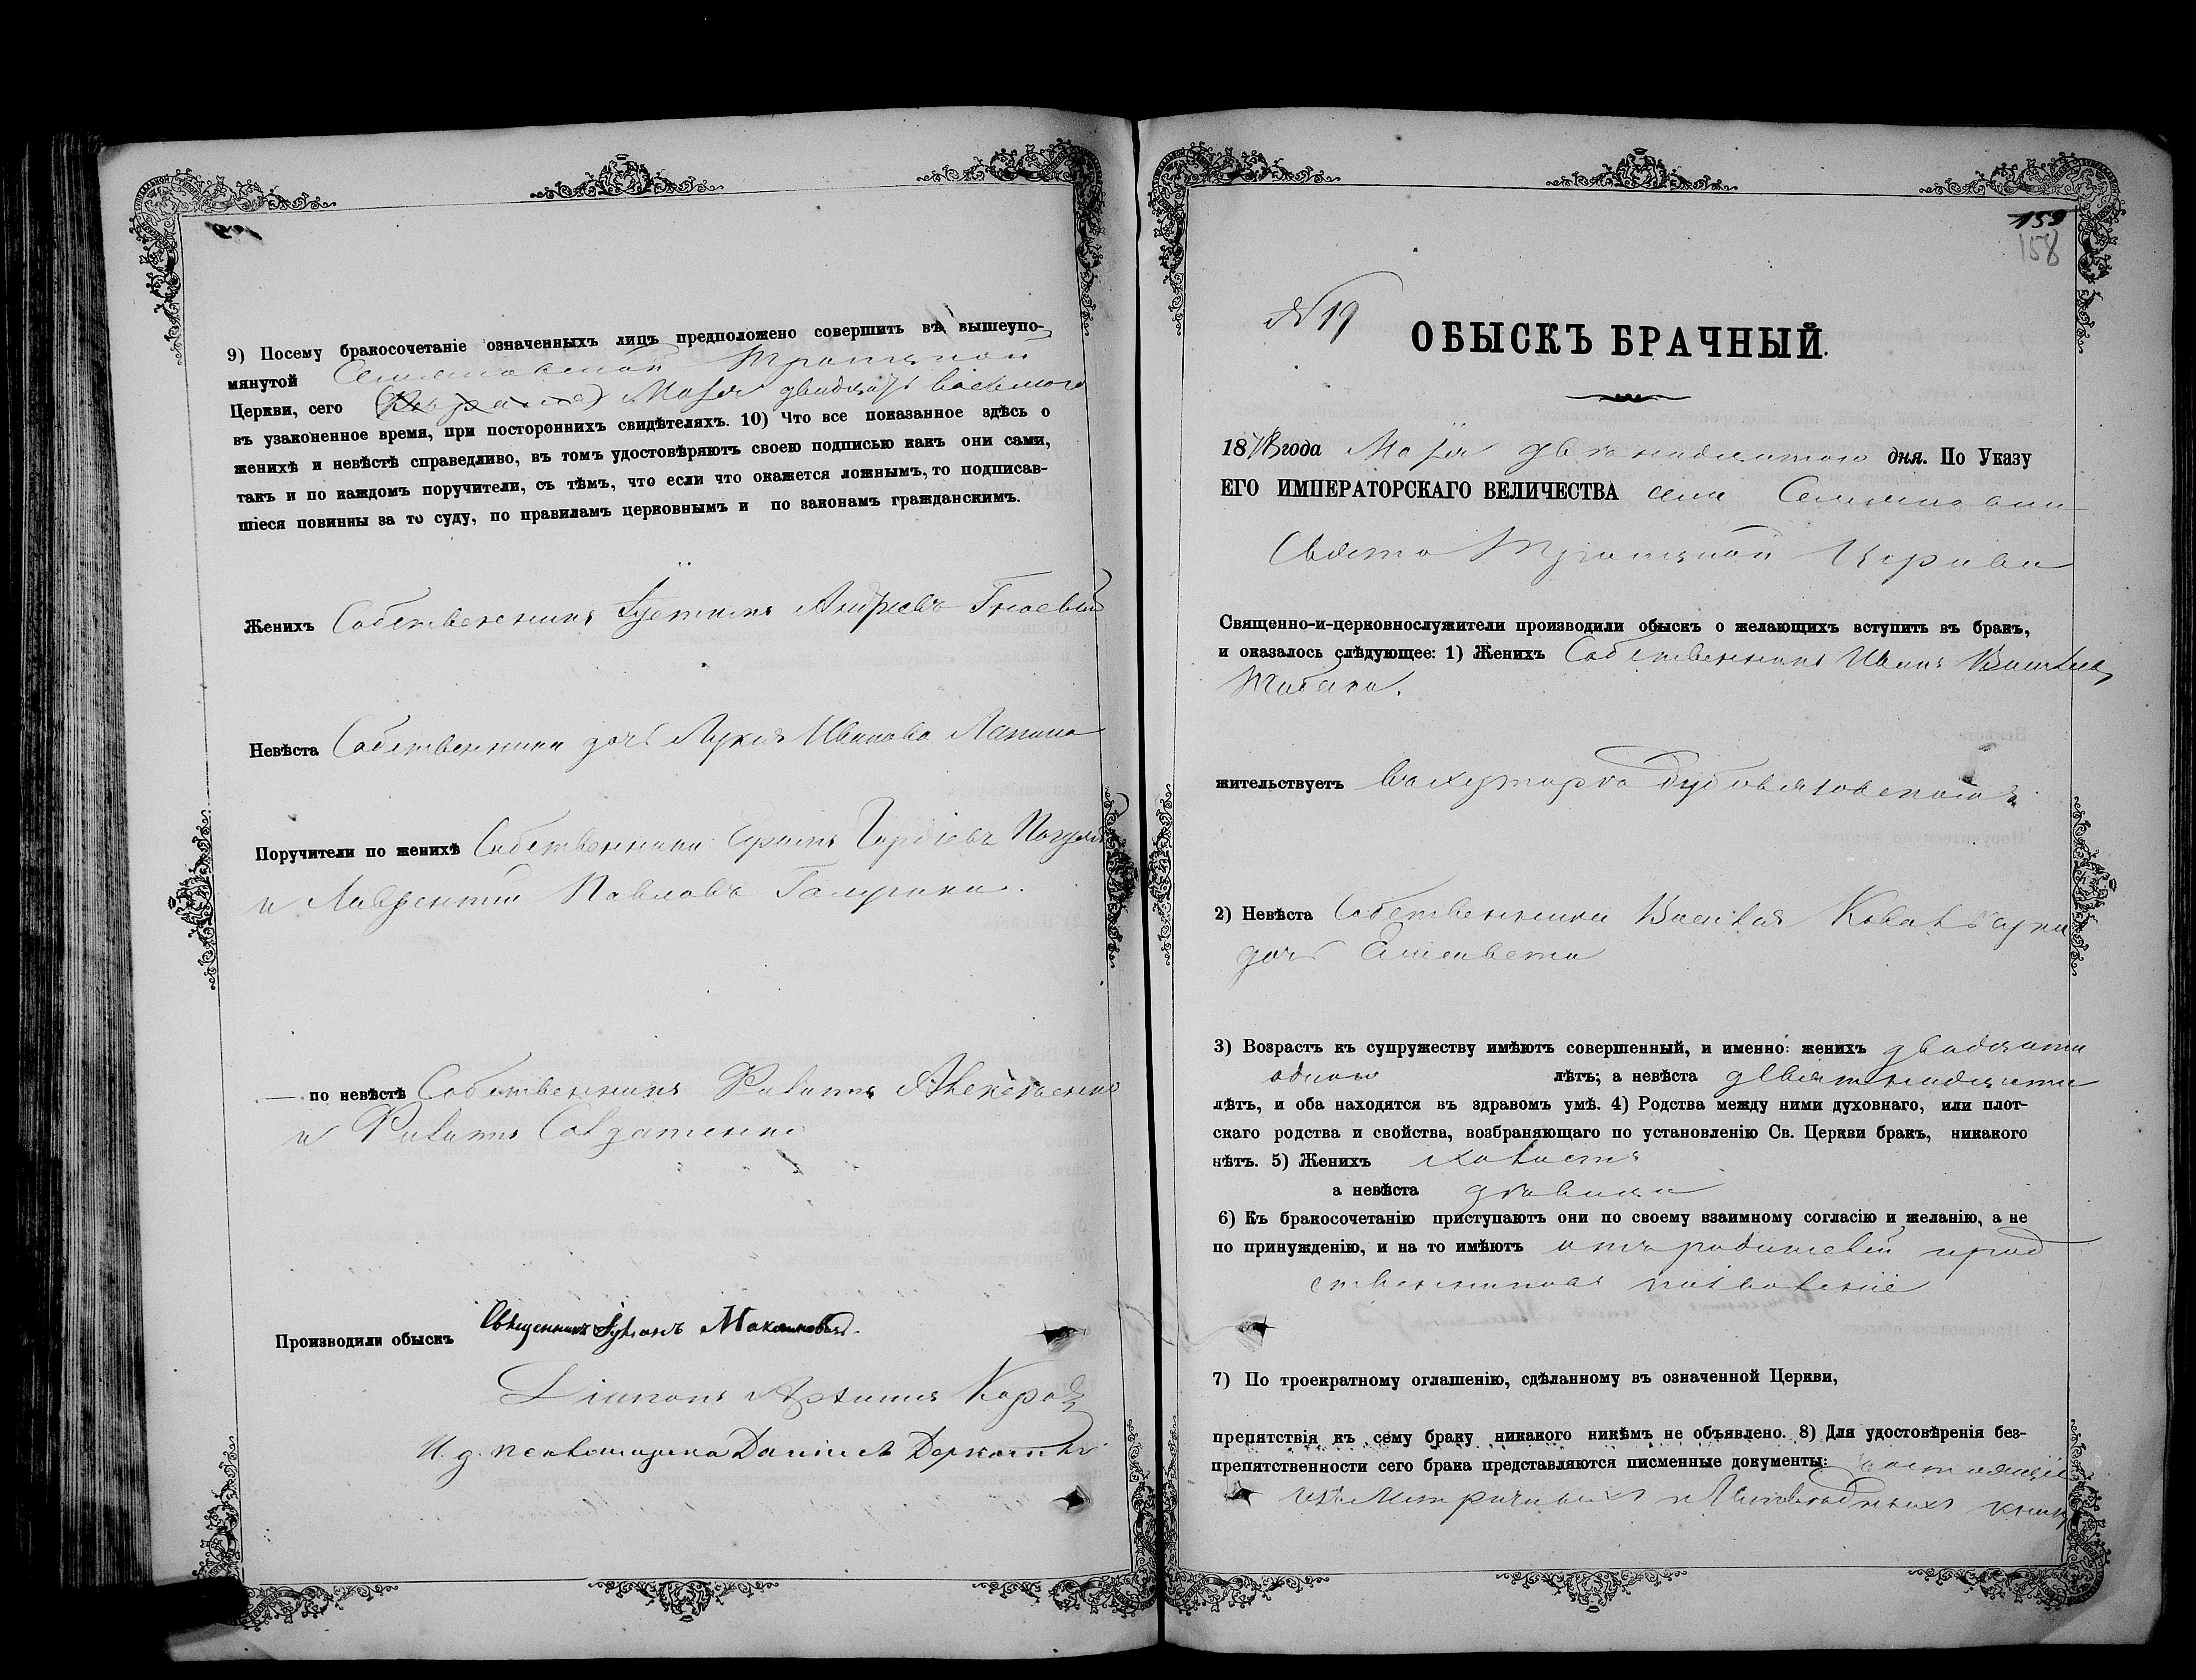 9) Посему бракосочетаніе означенныхъ лицъ предположено совершить въ вышеупо-
мянутой Семяновской Троицкой
Церкви, сего Маія двадцать восьмого
въ узаконенное время, при постороннихъ свидѣтеляхъ. 10) Что все показанное здѣсь о
женихѣ и невѣстѣ справедливо, въ томъ удостовѣряютъ своею подписью какъ они сами,
такъ и по каждомъ поручители, съ тѣмъ, что если что окажется ложнымъ, то подписав-
шіеся повинны за то суду, по правиламъ церковнымъ и по законамъ гражданскимъ.
Женихъ Собственникъ Іустинъ Андреевъ Гноевый
Невѣста Собственника дочь Лукія Иванова Лапина
Поручители по женихѣ Собственники Гордіевъ
и Лаврентій Павловъ Галушка.
— по невѣстѣ Собственникъ Филипъ Алексѣенко
и Филипъ Солдатенко
Производили обыскъ Священникъ Іуліанъ
Діаконъ
И. д. псаломщика Даніилъ
159
158
№ 19
ОБЫСКЪ БРАЧНЫЙ.
18 года Маія двѣнадцатого дня. По Указу
ЕГО ИМПЕРАТОРСКАГО ВЕЛИЧЕСТВА села Семяновки
Свято Троицкой Церкви
Священно-и-церковнослужители производили обыскъ о желающихъ вступить въ бракъ,
и оказалось слѣдующее: 1) Женихъ Собственникъ Иванъ Васильевъ
Жабека.
жительствуетъ въ хуторѣ Дубовязовскомъ
2) Невѣста Собственника Василія Ковальчука
дочь Елисавета
3) Возрастъ къ супружеству имѣютъ совершенный, и именно: женихъ двадцати
одного лѣтъ; а невѣста девятнадцати
лѣтъ, и оба находятся въ здравомъ умѣ. 4) Родства между ними духовнаго, или плот-
скаго родства и свойства, возбраняющаго по установленію Св. Церкви бракъ, никакого
нѣтъ. 5) Женихъ холостъ
а невѣста дѣвица
6) Къ бракосочетанію приступаютъ они по своему взаимному согласію и желанію, а не
по принужденію, и на то имѣютъ отъ родителей
позволеніе
7) По троекратному оглашенію, сдѣланному въ означенной Церкви,
препятствія къ сему браку никакого никѣмъ не объявлено. 8) Для удостовѣренія без-
препятственности сего брака представляются писменные документы:
изъ Метричныхъ и Исповѣдныхъ книгъ